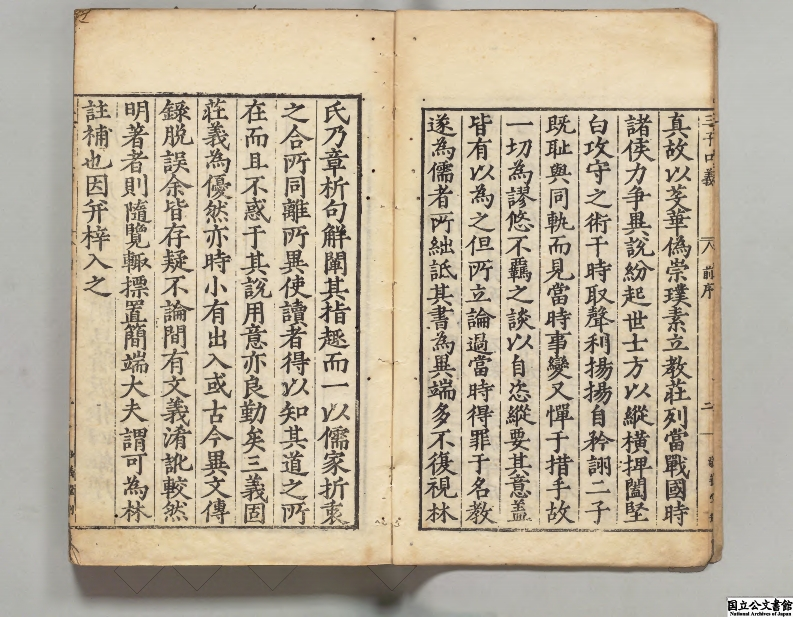 三子口義
前序
二
真故以芟華僞崇璞素立教莊列當戰國時
諸侯力争異說紛起世士方以縱橫捭闔堅
白攻守之術干時取聲利揚揚自矜詡二子
既耻與同軌而見當時事變又憚于措手故
一切為謬悠不羈之談以自恣縱要其意蓋
皆有以為之但所立論過當時得罪于名教
遂為儒者所絀詆其書為異端多不復視林
氏乃章析句解闡其指趣而一以儒家折衷
之合所同離所異使讀者得以知其道之所
在而且不惑于其說用意亦良勤矣三義固
莊義為優然亦時小有出入或古今異文傳
錄脫誤余皆存疑不論間有文義淆訛較然
明著者則隨覽輙摽置簡端大夫謂可為林
註補也因并梓入之
国立公文書館
National Archives of Japan